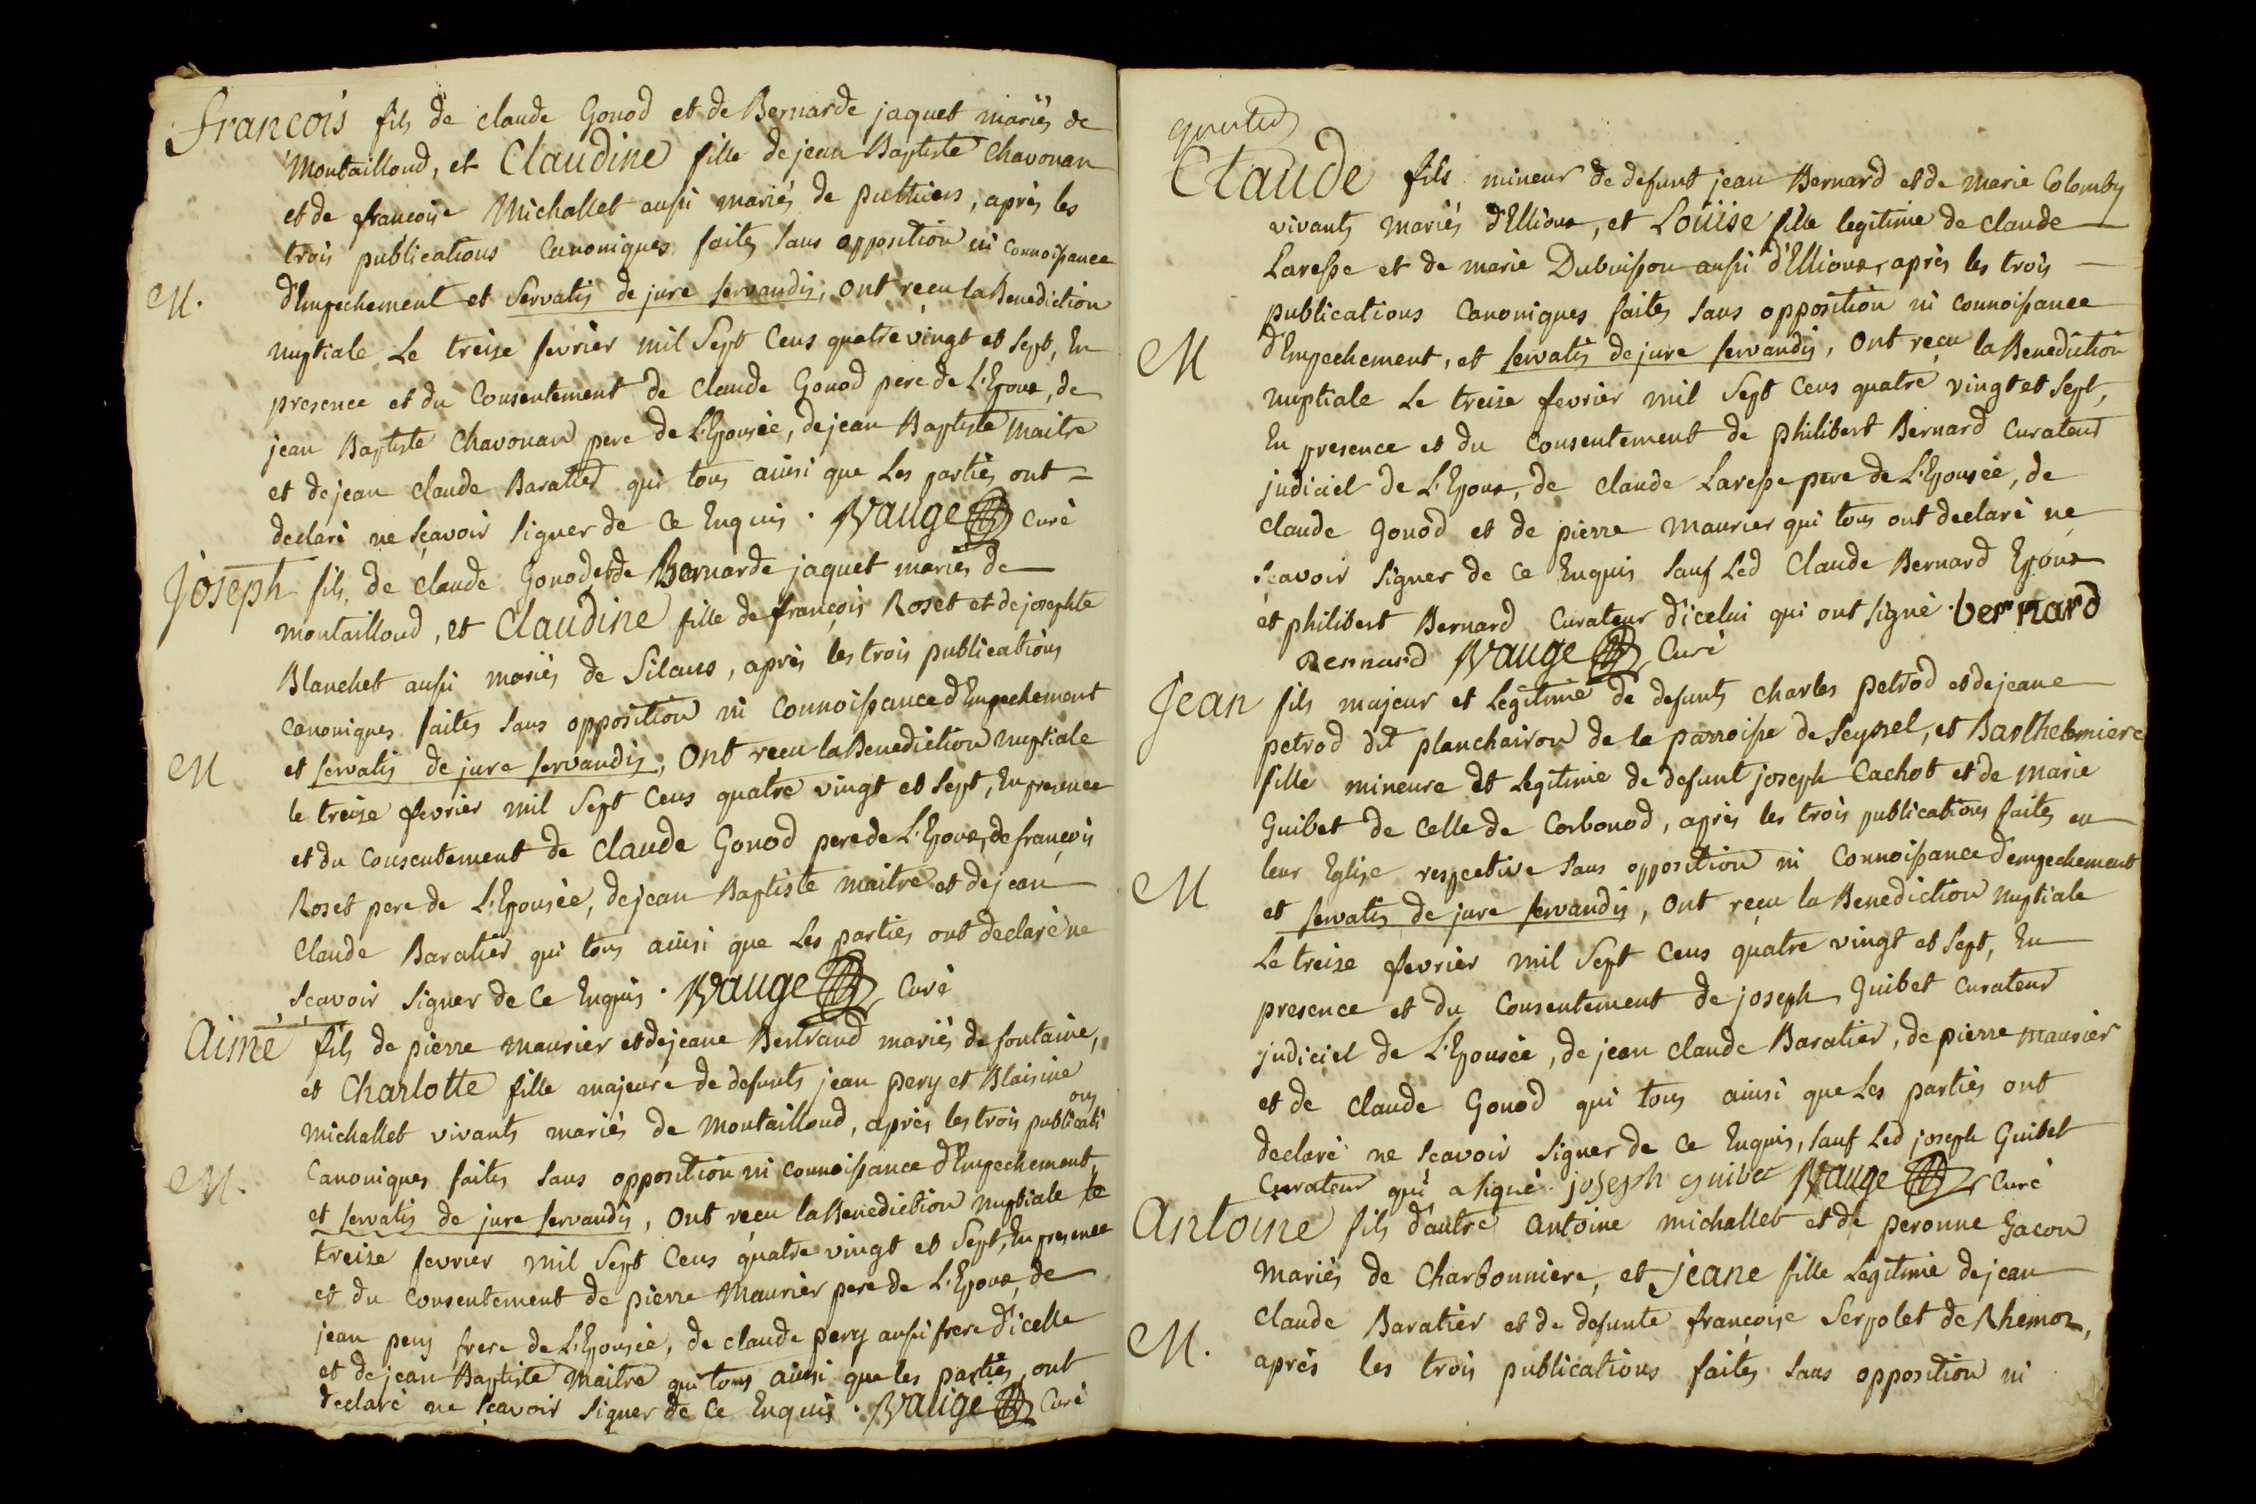 françois fils de claude Gonod et de Bernarde jaquet mariés de
Montailloud, et Claudine fille de jean Baptiste Chavonan
et de françoise Michallet aussi mariés de puthiers, après les
trois publications Canoniques faites sans opposition ni Connoissance
M. d'Empechement et Servatis de jure servandis, ont reçu la Benediction
nuptiale Le treize fevrier mil Sept Cens quatre vingt et sept, En
presence et du Consentement de Claude Gonod pere de L'Epoux, de
jean Baptiste Chavonan pere de L'Epousée, de jean Baptiste Maitre
et de jean claude Baratier qui tous ainsi que Les parties ont
declaré ne sçavoir signer de ce Enquis. Vauge Curé
Joseph fils de claude Gonod et de Bernarde jaquet mariés de
Montailloud, et Claudine fille de françois Roset et de josephte
Blanchet aussi mariés de Silans, après les trois publications
canoniques faites sans opposition ni Connoissance d'Empechement
M et servatis de jure servandis, Ont reçu la Benediction nuptiale
le treize fevrier mil Sept Cens quatre vingt et Sept, En presence
et du Consentement de Claude Gonod pere de L'Epoux, de françois
Roset pere de L'Epousée, de jean Baptiste maitre et de jean
Claude Baratier qui tous ainsi que Les parties ont declaré ne
sçavoir signer de ce Enquis. Vauge Curé
Aimé fils de pierre maurier et de jeane Bertrand mariés de fontaine,
et Charlotte fille majeure de defunts jean pery et Blaisine
Michallet vivants mariés de Montailloud, après les trois publications
M. Canoniques faites sans opposition ni connoissance d'Empechement,
et servatis de jure servandis, Ont reçu la Benediction nuptiale le
treize fevrier mil Sept Cens quatre vingt et Sept, En presence
et du Consentement de pierre Maurier pere de L'Epoux, de
jean pery frere de L'Epousée, de claude pery aussi frere d'icelle
et de jean Baptiste Maitre qui tous ainsi que les parties ont
declaré ne sçavoir signer de ce Enquis. Vauge Curé
Claude fils mineur de defunt jean Bernard et de marie Colomby
vivants mariés d'Ellioux, et Loüise fille legitime de claude
Laresse et de marie Dubuisson aussi d'Ellioux, après les trois
publications Canoniques faites sans opposition ni connoissance
M d'Empechement, et servatis de jure servandis, Ont reçu la Benediction
nuptiale Le treize fevrier mil Sept Cens quatre vingt et Sept,
En presence et du Consentement de philibert Bernard Curateur
judiciel de L'Epoux, de claude Laresse pere de L'Epousée, de
claude Gonod et de pierre Maurier qui tous ont declaré ne
sçavoir signer de ce Enquis sauf Led Claude Bernard Epoux
et philibert Bernard Curateur d'icelui qui ont signé. bernard
Bernard Vauge Curé
Jean fils majeur et Legitime de defunts Charles petrod et de jeane
petrod dit planchairon de la parroisse de Seyssel, et Barthelmiere
fille mineure et Legitime de defunt joseph Cachot et de Marie
Guibet de Celle de Corbonod, après les trois publications faites en
leur Eglise respective sans opposition ni Connoissance d'empechement
M et servatis de jure servandis, Ont reçu la Benediction nuptiale
Le treize fevrier mil Sept Cens quatre vingt et Sept, En
presence et du Consentement de joseph Guibet Curateur
judiciel de L'Epousée, de jean claude Baratier, de pierre Maurier
et de Claude Gonod qui tous ainsi que Les parties ont
declaré ne scavoir signer de ce Enquis, sauf Led joseph Guibet
Curateur qui a signé. joseph guibet Vauge Curé
Antoine fils d'autre Antoine michallet et de peronne Gacon
Mariés de Charbonniere, et jeane fille Legitime de jean
Claude Baratier et de defunte françoise Serpolet de Rhemoz,
M. après les trois publications faites sans opposition ni